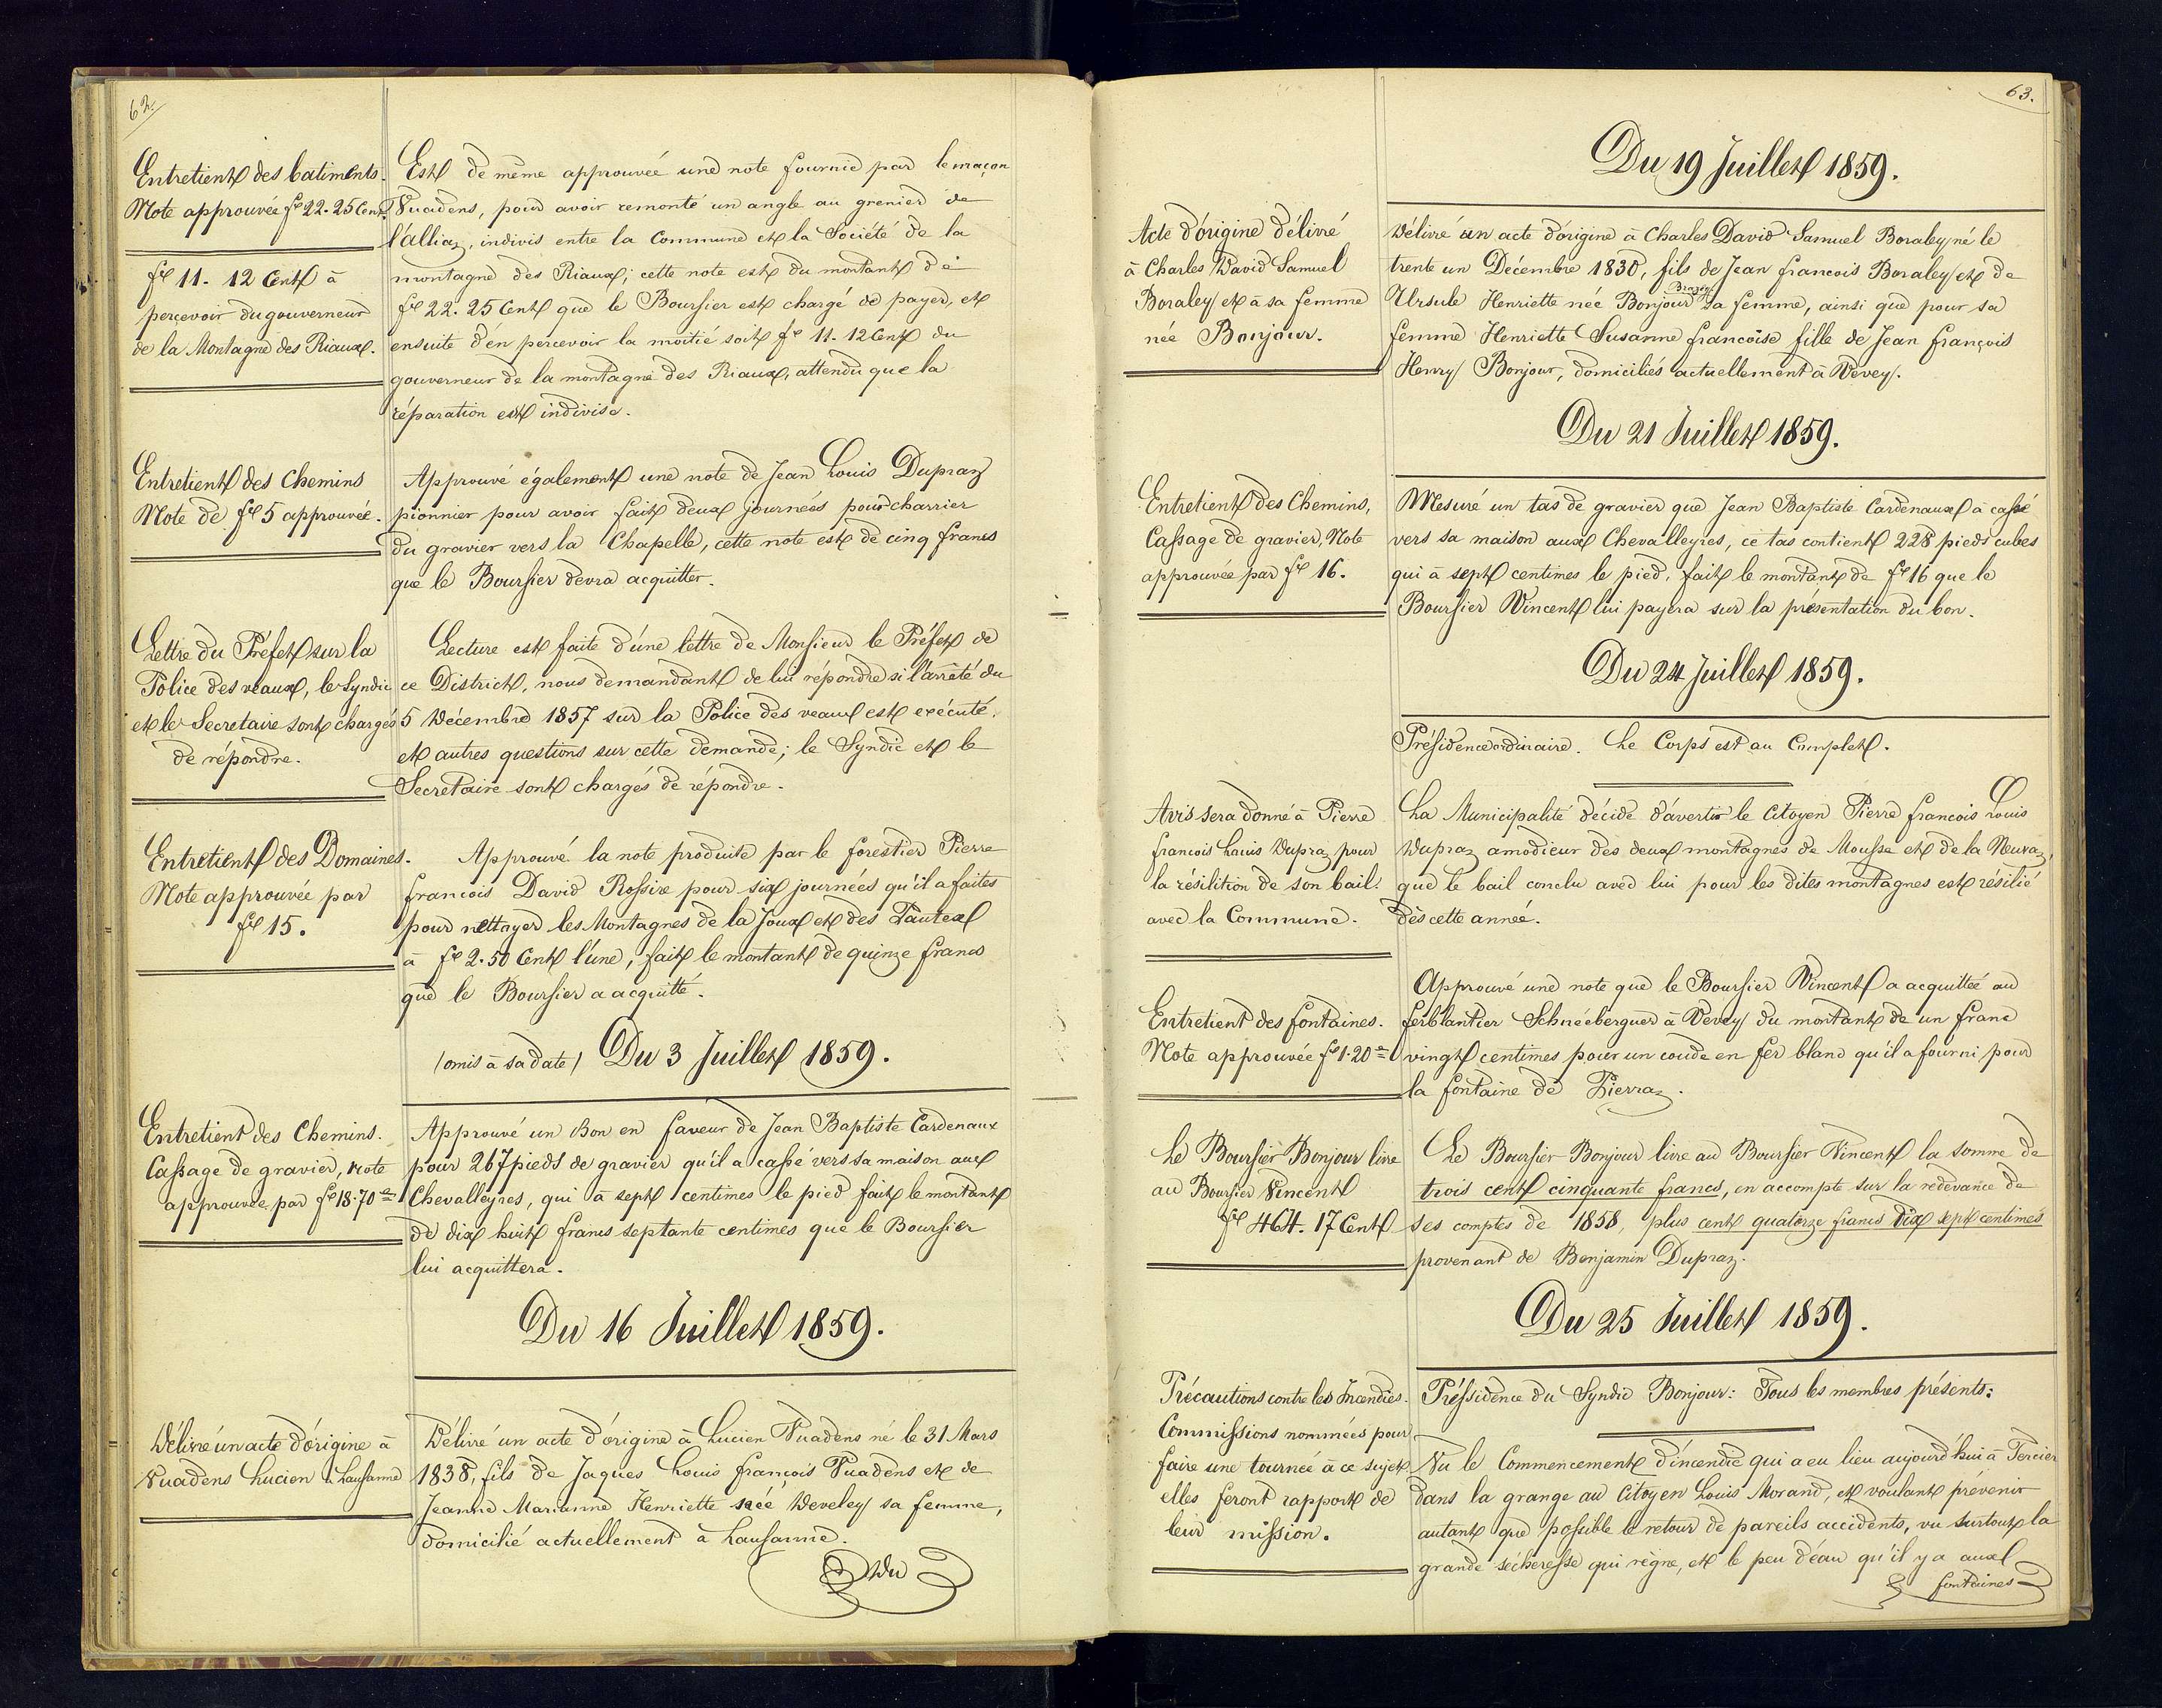 62.
Entretient des batiments.
Note approuvée fs 22.25 Cent.
fs 11. 12 Cent à
percevoir du gouverneur
de la Montagne des Riaux.
Est de même approuvée une note fournie par le maçon
Vuadens, pour avoir remonté un angle au grenier de
l'alliaz, indivis entre la Commune et la Société de la
montagne des Riaux; cette note est du montant de
fs 22. 25 Cent que le Boursier est chargé de payer, et
ensuite d'en percevoir la moitié soit fs 11. 12 Cent du
gouverneur de la montagne des Riaux, attendu que la
réparation est indivise.
Entretient des Chemins
Note de fs 5 approuvée.
Approuvé également une note de Jean Louis Dupraz
pionnier pour avoir fait deux journées pour charrier
du gravier vers la Chapelle, cette note est de cinq francs
que le Boursier devra acquitter.
Lettre du Préfet sur la
Police des veaux, le Syndic
et le Secretaire sont chargés
de répondre.
Lecture est faite d'une lettre de Monsieur le Préfet de
ce District, nous demandant de lui répondre si l'arrêté du
5 Décembre 1857 sur la Police des veaux est exécuté.
et autres questions sur cette demande; le Syndic et le
Secretaire sont chargés de répondre.
Entretient des Domaines.
Note approuvée par
fs 15.
Approuvé la note produite par le forestier Pierre
francois David Rossire pour six journées qu'il a faites
pour nettoyer les Montagnes de la Joux et des Pautex
à fs 2.50 Cent l'une, fait le montant de quinze francs
que le Boursier a acquitté.
(omis à sa date) Du 3 Juillet 1859.
Entretient des Chemins.
Cassage de gravier, note
approuvée par fs 18.70 c
Approuvé un Bon en faveur de Jean Baptiste Cardenaux
pour 267 pieds de gravier qu'il a cassé vers sa maison aux
Chevalleyres, qui à sept centimes le pied fait le montant
de dix huit francs septante centimes que le Boursier
lui acquittera.
Du 16 Juillet 1859.
Délivré un acte d'origine à
Vuadens Lucien à Lausanne
Délivré un acte d'origine à Lucien Vuadens né le 31 Mars
1838, fils de Jaques Louis françois Vuadens et de
Jeanne Marianne Henriette née Develey sa femme,
domicilié actuellement à Lausanne.
Du
63.
Du 19 Juillet 1859.
Acte d'origine délivré
à Charles David Samuel
Boraley et à sa femme
née Bonjour.
Délivré un acte d'origine à Charles David Samuel Boraley né le
trente un Décembre 1830, fils de Jean francois Boraley et de
Ursule Henriette née Bonjour sa femme, ainsi que pour sa
femme Henriette Susanne francoise fille de Jean françois
Henry Bonjour, domiciliés actuellement à Vevey.
Du 21 Juillet 1859.
Entretient des Chemins,
Cassage de gravier, Note
approuvée par fs 16.
Mesuré un tas de gravier que Jean Baptiste Cardenaux à cassé
vers sa maison aux Chevalleyres, ce tas contient 228 pieds cubes
qui à sept centimes le pied, fait le montant de fs 16 que le
Boursier Vincent lui payera sur la présentation du bon.
Du 24 Juillet 1859.
Présidence ordinaire. Le Corps est au Complet.
Avis sera donné à Pierre
francois Louis Dupraz pour
la résilition de son bail
avec la Commune.
La Municipalité décide d'avertir le Citoyen Pierre francois Louis
Dupraz amodieur des deux montagnes de Mousse et de la Neuvaz,
que le bail conclu avec lui pour les dites montagnes est résilié
dès cette année.
Entretient des fontaines.
Note approuvée fs 1.20 c
Approuvé une note que le Boursier Vincent a acquittée au
ferblantier Schnéeberguer à Vevey du montant de un franc
vingt centimes pour un coude en fer blanc qu'il a fourni pour
la fontaine de Pierraz.
Le Boursier Bonjour livre
au Boursier Vincent
fs 464. 17 Cent
Le Boursier Bonjour livre au Boursier Vincent la somme de
trois cent cinquante francs, en accompte sur la redevance de
ses comptes de 1858, plus cent quatorze francs dix sept centimes
provenant de Benjamin Dupraz.
Du 25 Juillet 1859.
Précautions contre les Incendies.
Commissions nommées pour
faire une tournée à ce sujet
elles feront rapport de
leur mission.
Préssidence du Syndic Bonjour: Tous les membres présents:
Vu le Commencement d'incendie qui a eu lieu aujourd'hui à Tercier
dans la grange au Citoyen Louis Morand, et voulant prévenir
autant que possible le retour de pareils accidents, vu surtout la
grande sécheresse qui règne, et le peu d'eau qu'il y a aux
fontaines